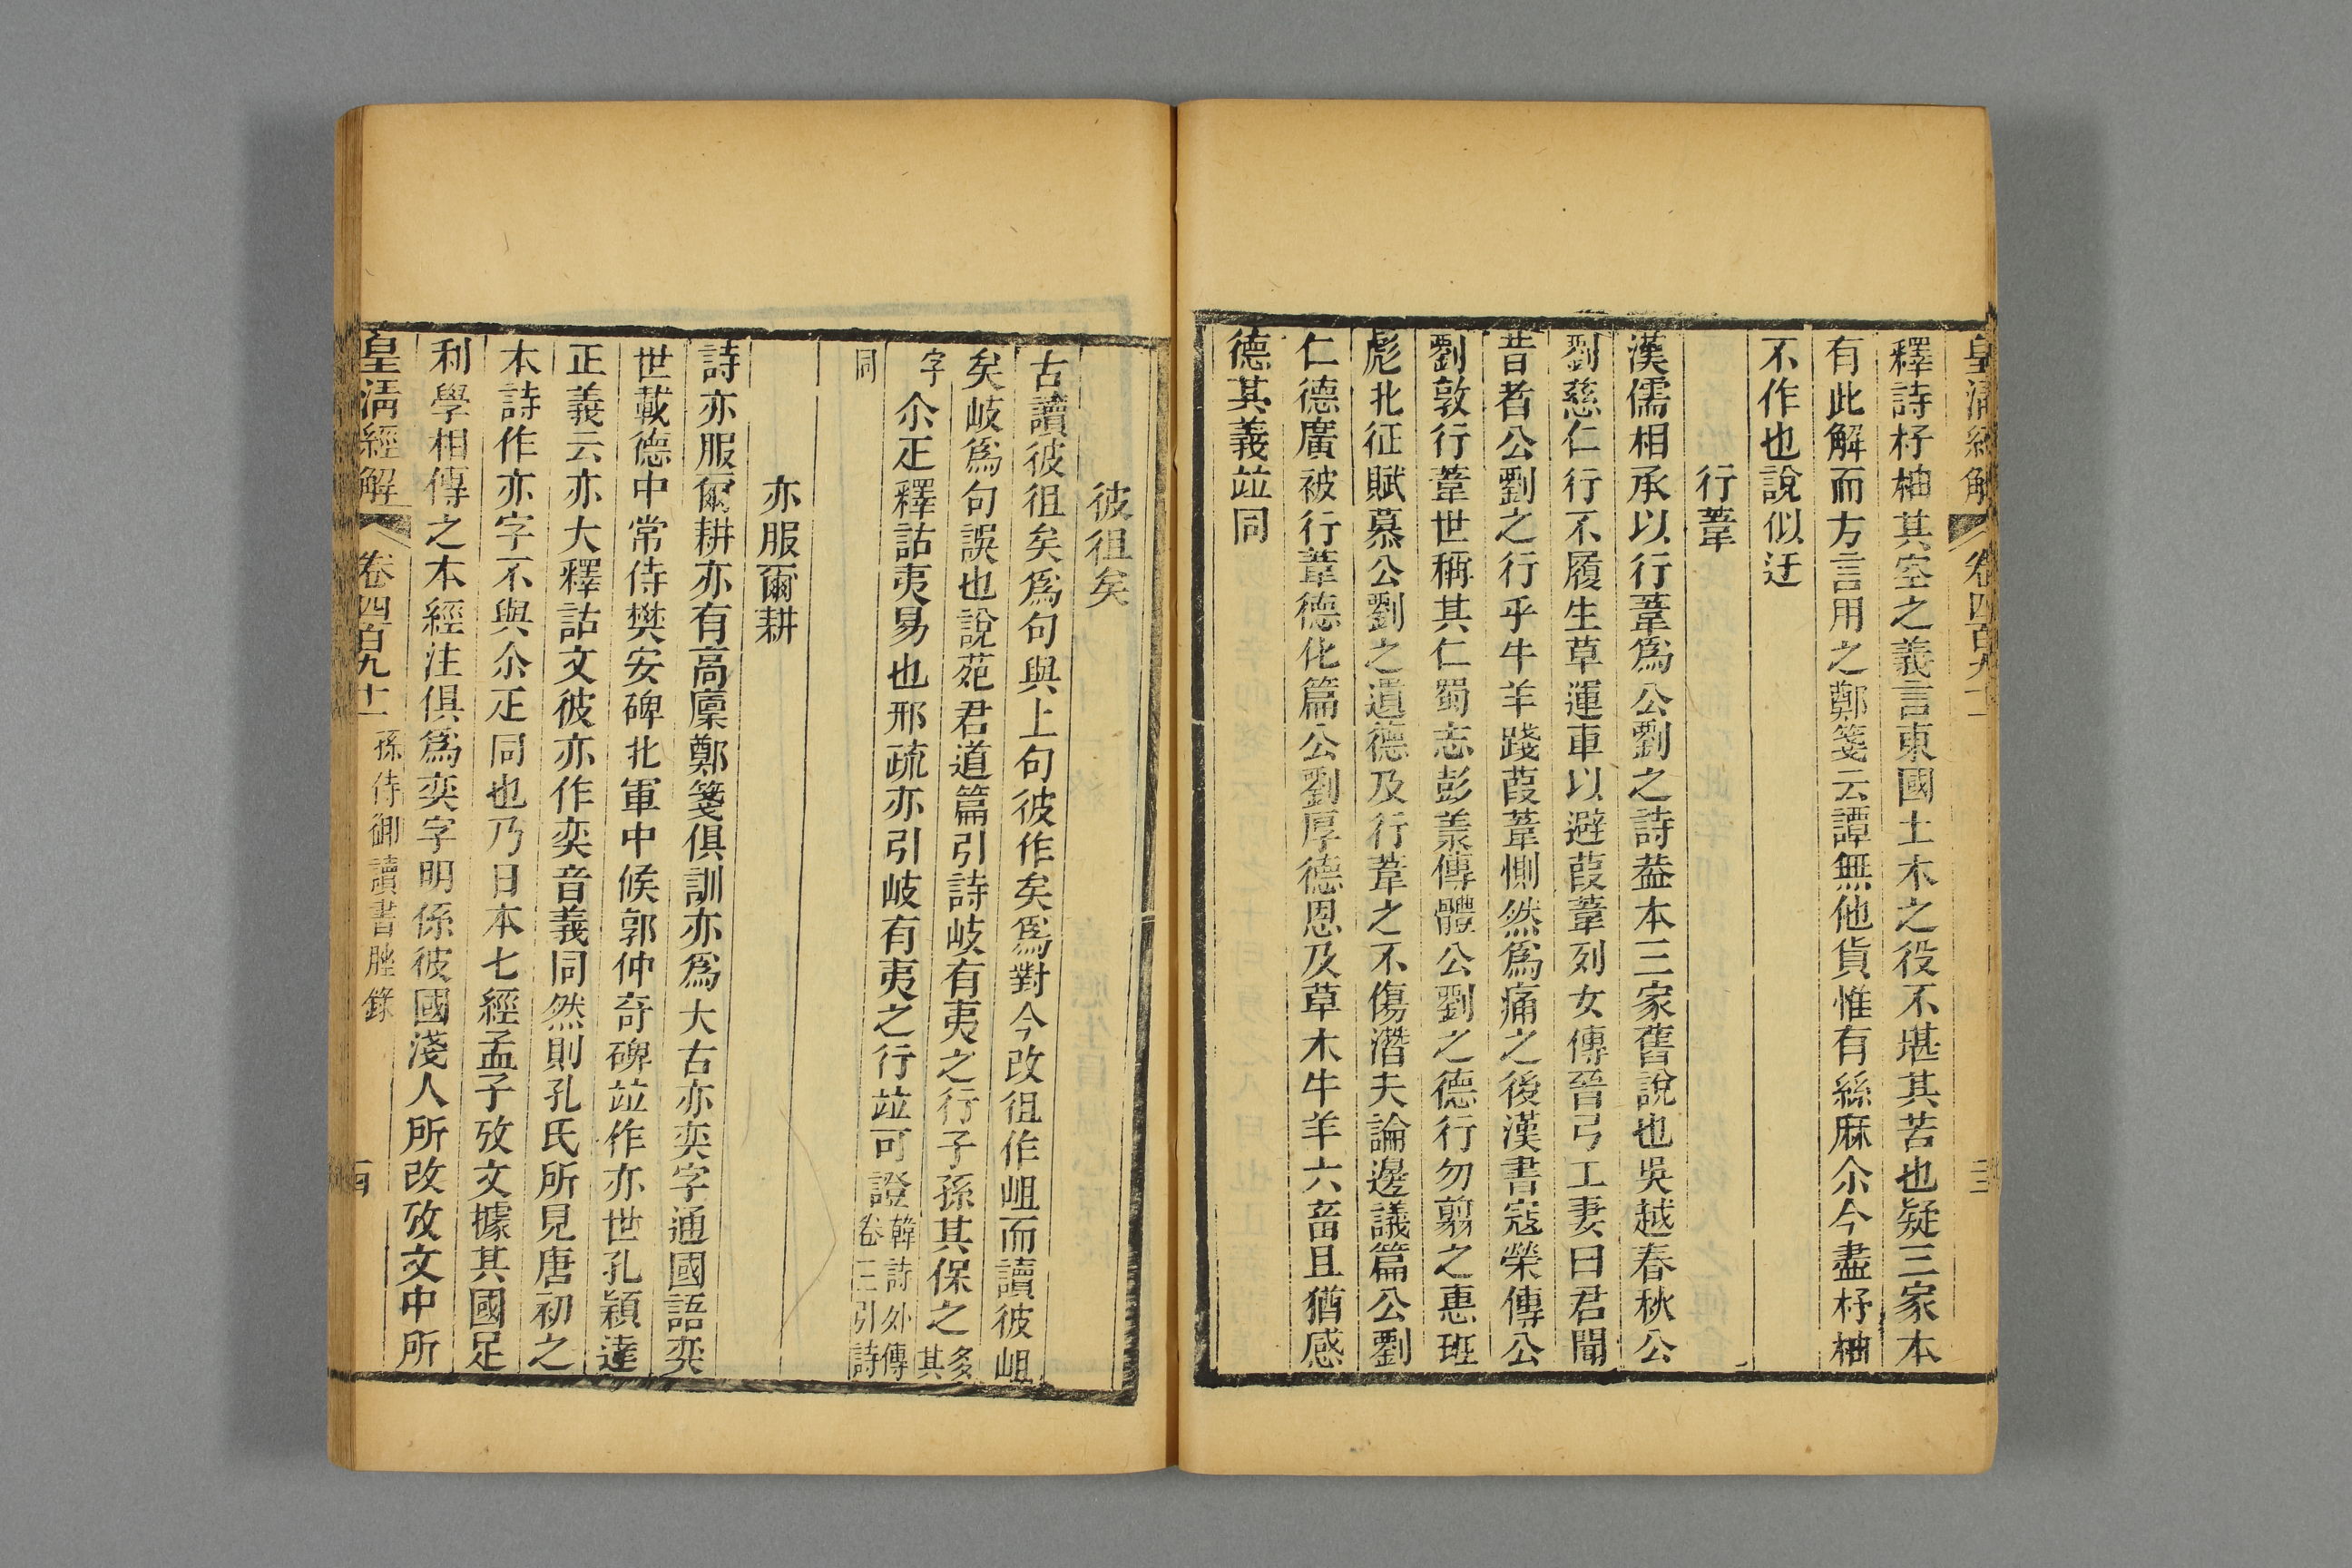 皇清經解 卷四百九十一 三
釋詩杼柚其空之義言東國土木之役不堪其苦也疑三家本
有此解而方言用之鄭箋云譚無他貨惟有絲麻尒今盡杼柚
不作也說似迂
行葦
漢儒相承以行葦爲公劉之詩葢本三家舊說也吳越春秋公
劉慈仁行不履生草運車以避葭葦列女傳晉弓工妻曰君聞
昔者公劉之行乎牛羊踐葭葦惻然爲痛之後漢書寇榮傳公
劉敦行葦世稱其仁蜀志彭羕傳體公劉之德行勿翦之惠班
彪北征賦慕公劉之遺德及行葦之不傷潛夫論邊議篇公劉
仁德廣被行葦德化篇公劉厚德恩及草木牛羊六畜且猶感
德其義竝同
彼徂矣
古讀彼徂矣爲句與上句彼作矣爲對今改徂作岨而讀彼岨
矣岐爲句誤也說苑君道篇引詩岐有夷之行子孫其保之多其
字尒疋釋詁夷易也邢疏亦引岐有夷之行竝可證韓詩外傳卷三引詩
同
亦服爾耕
詩亦服爾耕亦有高廩鄭箋俱訓亦爲大古亦奕字通國語奕
世載德中常侍樊安碑北軍中候郭仲奇碑竝作亦世孔穎達
正義云亦大釋詁文彼亦作奕音義同然則孔氏所見唐初之
本詩作亦字不與尒疋同也乃日本七經孟子攷文據其國足
利學相傳之本經注俱爲奕字明係彼國淺人所改攷文中所
皇清經解 卷四百九十一 孫侍御讀書脞錄 四